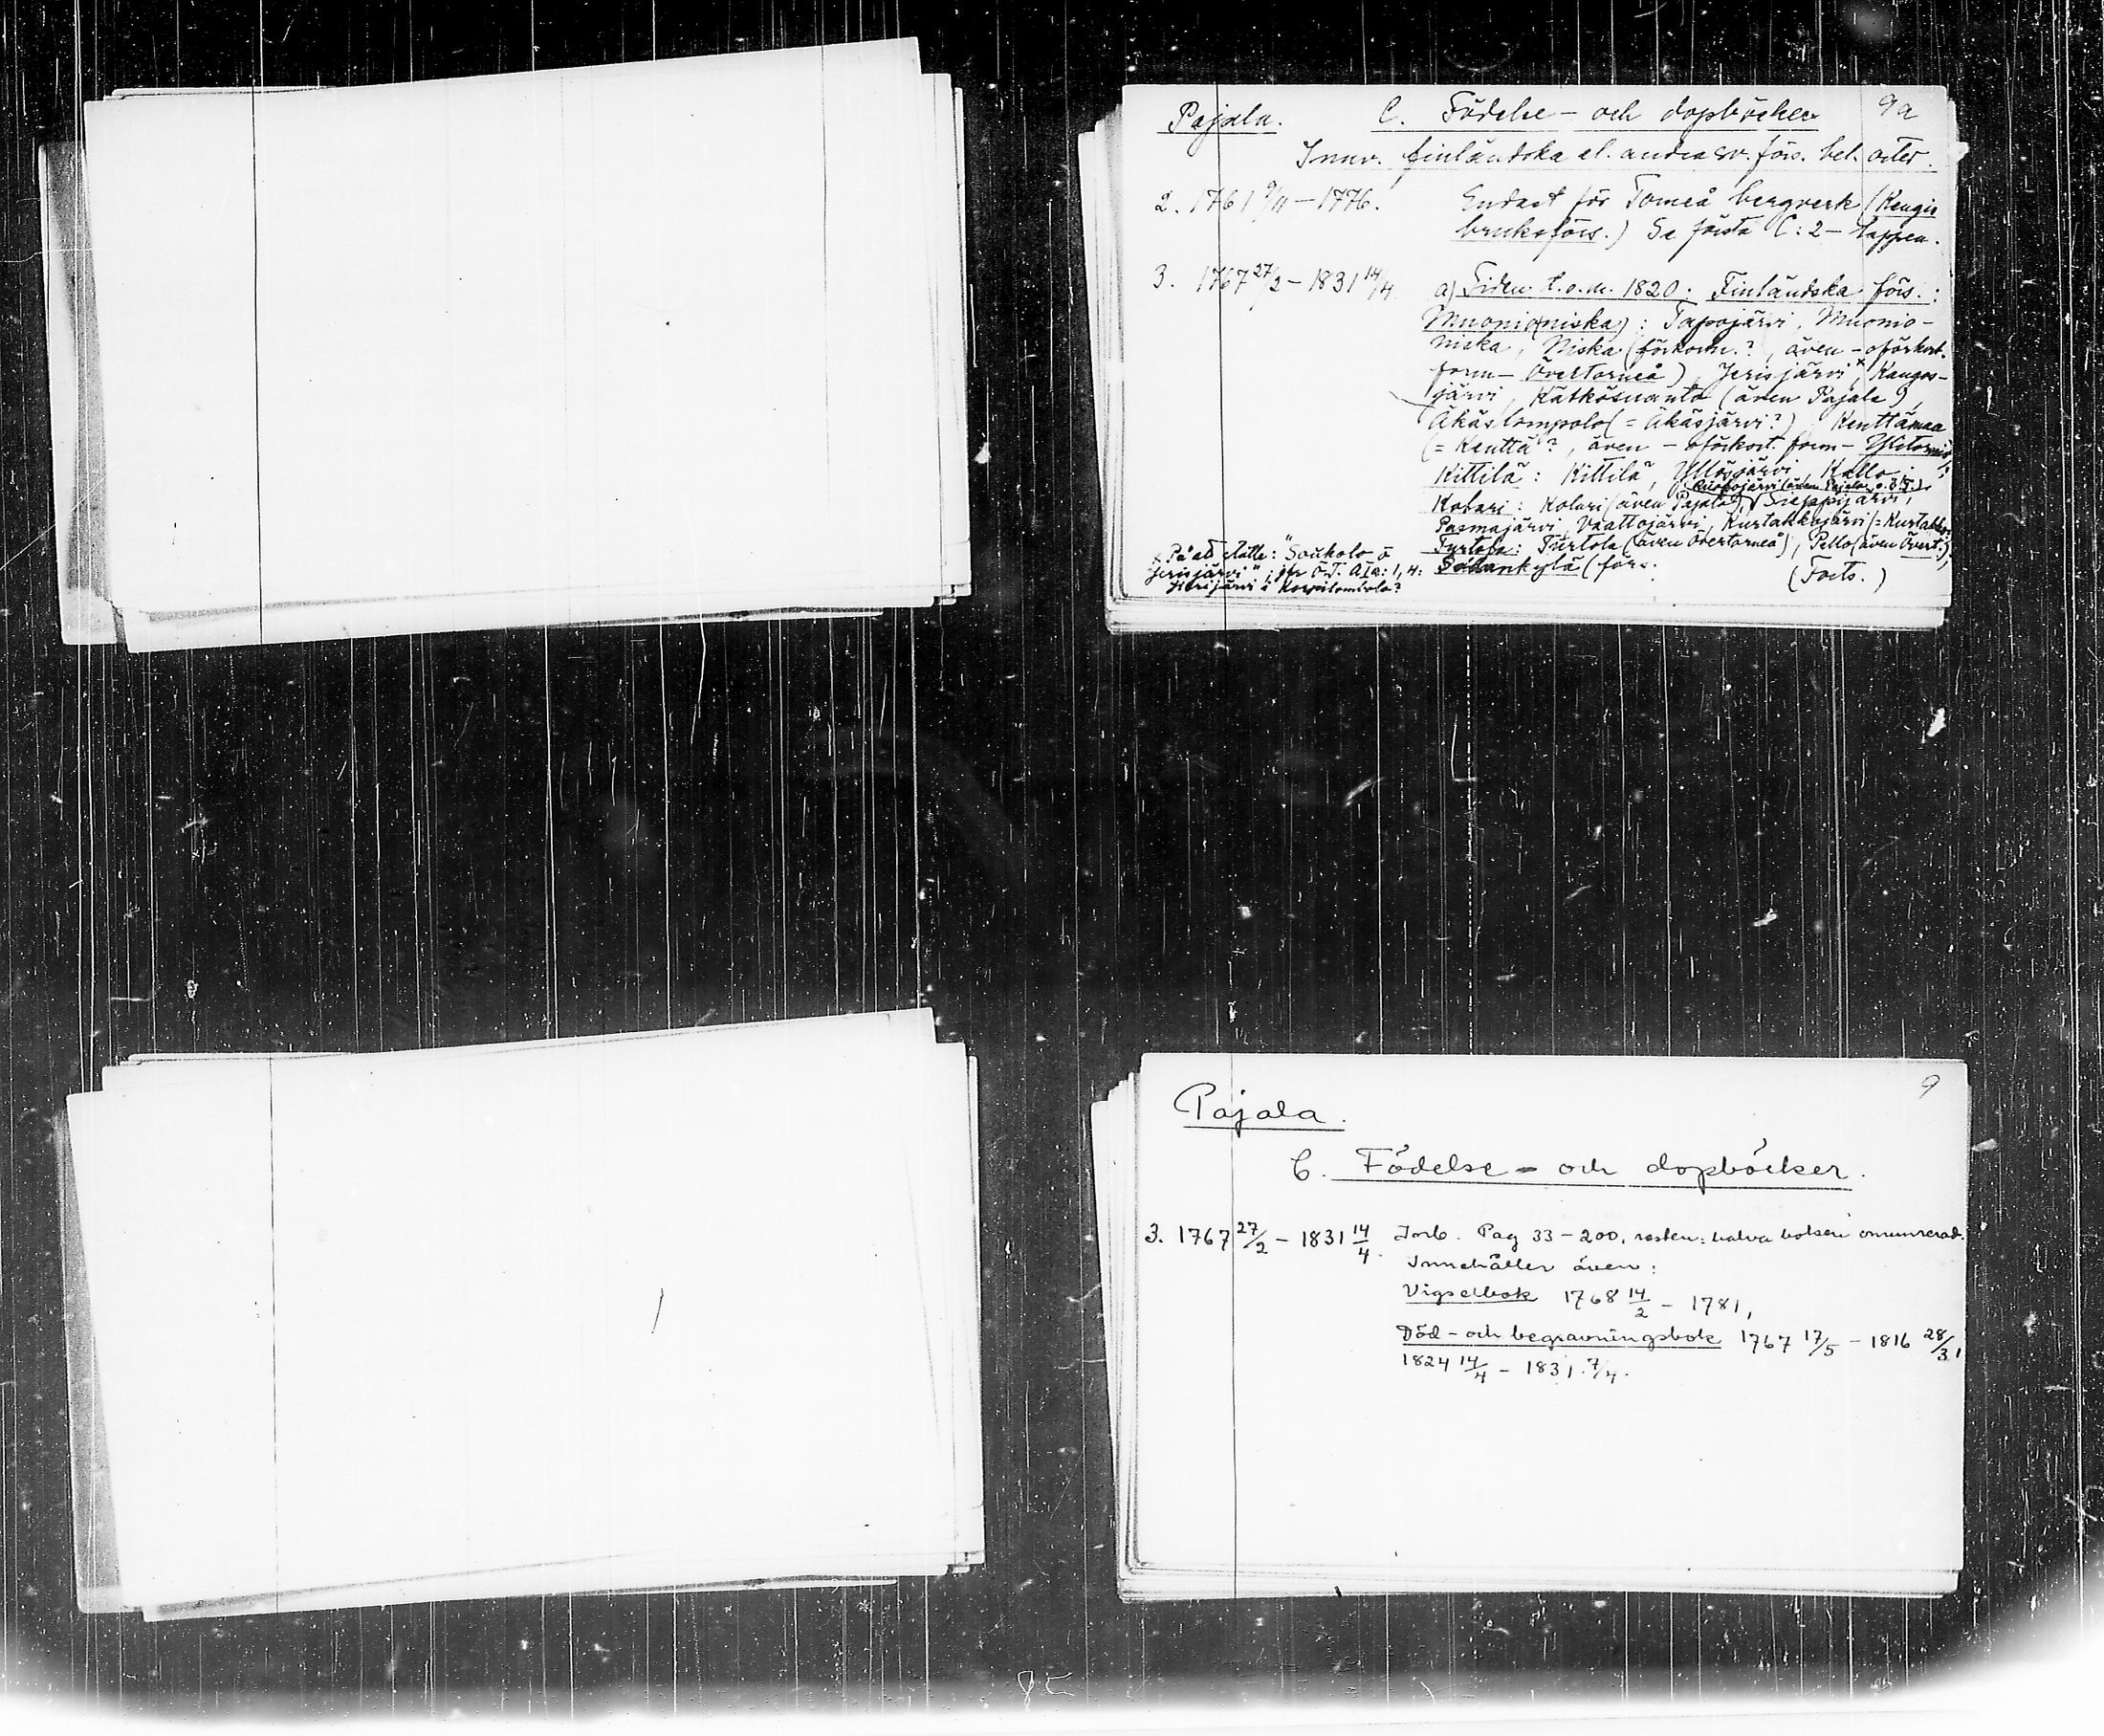 Pajala. C. Födelse- och dopböcker 9a
Innv. finländska el. andra sv. förs. bel. orter.
2. 1761 9/11 – 1776. Endast för Torneå bergverk (Kengis
bruksförs.) Se första C:2-lappen.
3. 1767 27/2 – 1831 14/4. a) Tiden t.o.m. 1820: Finländska förs.:
Muonio(niska): Tapojärvi, Muonio-
niska, Niska (förkortn.?, även – oförkort.
form – Övertorneå), Jerisjärvi x, Kangos-
järvi, Kätkösuanto (även Pajala),
Äkäslompolo (= Äkäsjärvi?), Kenttämaa
(= Kenttä?, även – oförkort. form –
Kittilä: Kittilä, Yllösjärvi, Kallo;
Ruokojärvi (även Pajala o. Ö.T.)
Kolari: Kolari (även Pajala), Sieppijärvi,
Pasmajärvi, Vaattojärvi, Kurtakkojärvi (= Kurtakko?
Turtola: Turtola (även Övertorneå), Pello (även Övert.),
Sodankylä (förs.
(Forts.)
x På ett ställe: "Soukolo o
Jerisjärvi"; jfr Ö.T. AIa: 1, 4:
Jierijärvi i Korpilombolo?
9
Pajala.
C. Födelse- och dopböcker.
3. 1767 27/2 – 1831 14/4. Inb. Pag 33–200, resten: halva boken onumrerad.
Innehåller även:
Vigselbok 1768 14/2 – 1781,
Död- och begravningsbok 1767 17/5 – 1816 28/3,
1824 14/4 – 1831 7/4.